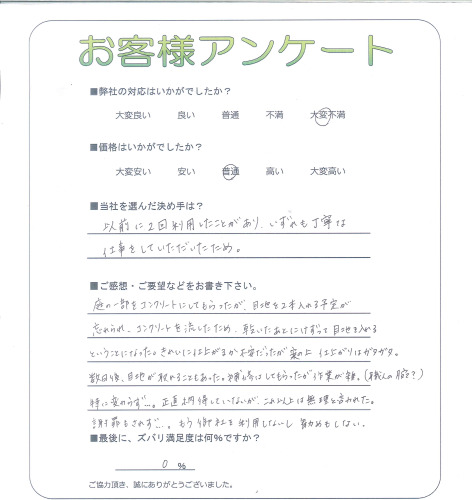 お客様アンケート
■弊社の対応はいかがでしたか？
大変良い 良い 普通 不満 大変不満
■価格はいかがでしたか？
大変安い 安い 普通 高い 大変高い
■当社を選んだ決め手は？
以前に2回利用したことがあり、いずれも丁寧な
仕事をしていただいたため。
■ご感想・ご要望などをお書き下さい。
庭の一部をコンクリートにしてもらったが、目地を2本入れる予定が
忘れられ、コンクリートを流したため、乾いたあとにけずって目地を入れる
ということになった。きれいに仕上がるか不安だったが案の上 仕上がりはガタガタ。
数日後、目地が取れることもあった。補修はしてもらったが作業が雑。(職人の腕？)
特に変わらず…。正直納得していないが、これ以上は無理と言われた。
謝罪もされず…。もう御社を利用しないし勧めもしない。
■最後に、ズバリ満足度は何%ですか？
0 %
ご協力頂き、誠にありがとうございました。